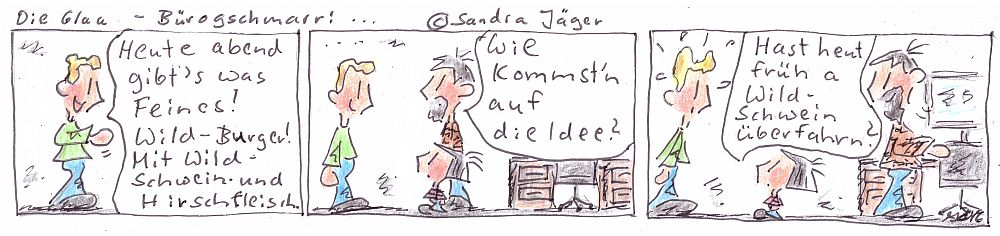 Die Glaa - Bürogschmarr! ... © Sandra Jäger
Heute abend
gibt's was
Feines!
Wild-Burger!
Mit Wild-
Schwein- und
Hirschfleisch.
Wie
Kommst'n
auf
die Idee?
Hast heut
früh a
Wild-
Schwein
überfahrn?